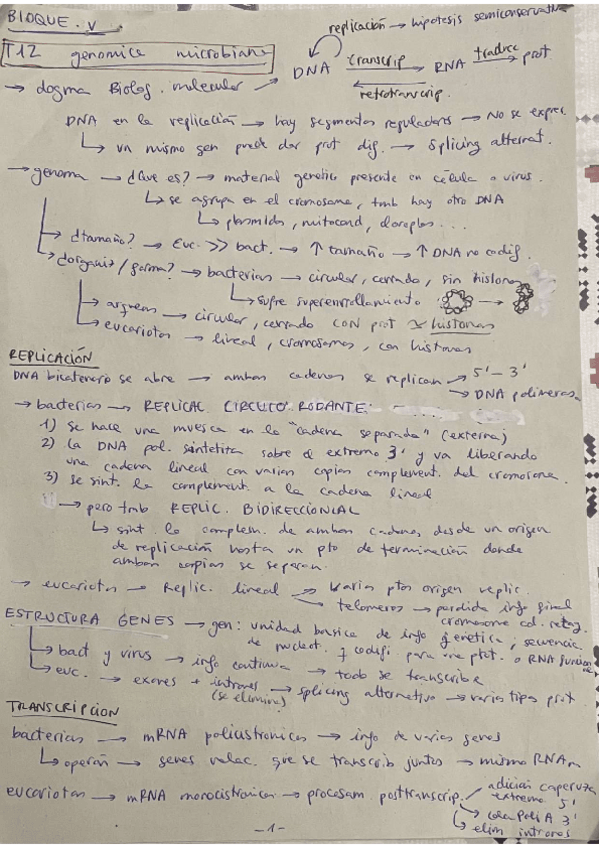 BLOQUE. V
replicación → hipotesis semiconservativa
T12 genomica microbiana
→ dogma Biolog. molecular → DNA transcrip → RNA traducc → prot
retrotranscrip.
DNA en la replicación → hay segmentos reguladores → No se expre
↳ un mismo gen puede dar prot dif. → Splicing alternat.
→ genoma → ¿Que es? → material genetico presente en célula o virus.
↳ se agrupa en el cromosoma, tmb hay otro DNA
↳ plasmidos, mitocond, cloroplas...
→ ¿tamaño? → Euc. >> bact. → ↑ tamaño → ↑ DNA no codif.
→ ¿organiz/forma? → bacterias → circular, cerrado, sin histonas
↳ sufre superenrollamiento →
→ arqueas → circular, cerrado CON prot histonas
→ eucariotas → lineal, cromosomas, con histonas
REPLICACIÓN
DNA bicatenario se abre → ambas cadenas se replican → 5'-3'
→ DNA polimerasa
→ bacterias → REPLICAC CIRCULO RODANTE:
1) se hace una muesca en la "cadena separada" (externa)
2) la DNA pol. sintetita sobre el extremo 3' y va liberando
una cadena lineal con varias copias complement. del cromosoma.
3) se sint. la complement. a la cadena lineal
→ pero tmb REPLIC. BIDIRECCIONCIAL
↳ sint. la complem. de ambas cadenas, desde un origen
de replicación hasta un pto de terminación donde
ambas copias se separan.
→ eucariotas → Replic. lineal → varios ptos origen replic.
→ telomeros → perdida info final
cromosoma cd. retag.
ESTRUCTURA GENES → gen: unidad basica de info genética; secuencia
de nucleot. q codifi para una prot. o RNA funcional
→ bact y virus → info continua → todo se transcribe
→ euc. → exones + intrones → splicing alternativo → varios tipos prot
(se eliminan)
TRANSCRIPCION
bacterias → mRNA policistronicos → info de varios genes
↳ operón → genes relac. que se transcrib juntos → mismo RNAm
eucariotas → mRNA monocistronicos → procesam. posttranscrip. → adición caperuza
extremo 5'
→ cola Poli A 3'
→ elim intrones
-1-